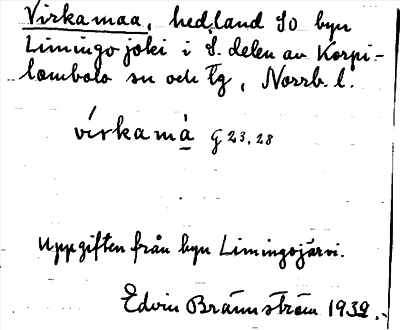 Virkamaa, hedland SO byn
Limingojoki i S. delen av Korpi-
lombolo sn och Tg, Norrb. l.
vírkamà G 23, 28
Uppgiften från byn Limingojärvi.
Edvin Brännström 1939.